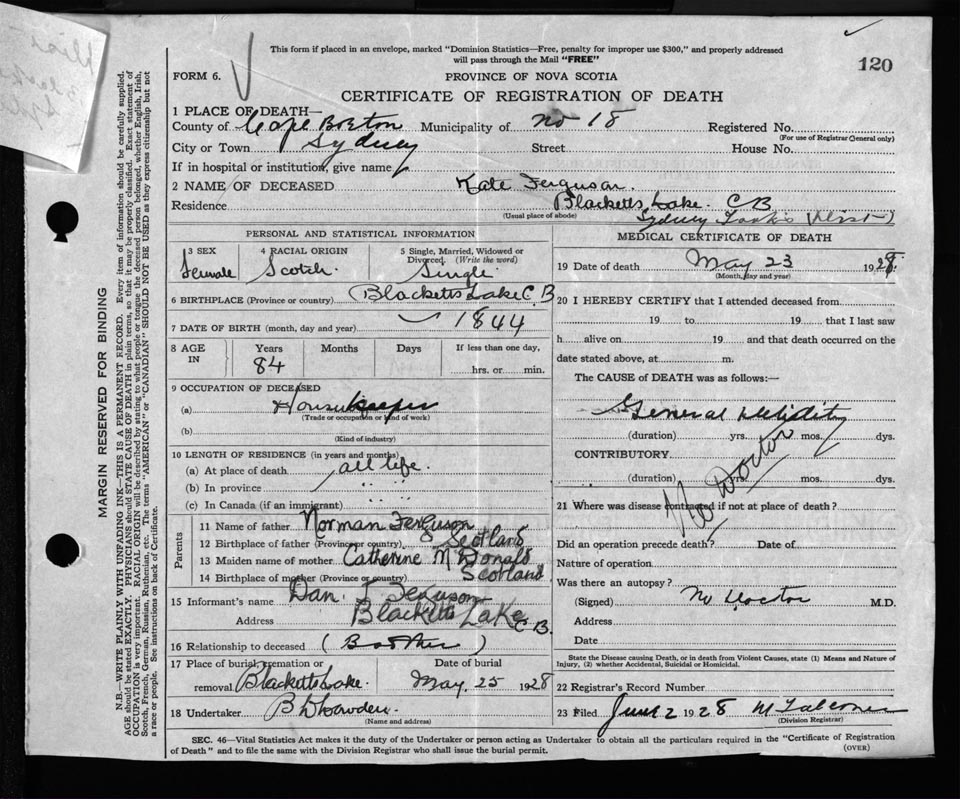 This form if placed in an envelope, marked "Dominion Statistics—Free, penalty for improper use $300," and properly addressed
will pass through the Mail "FREE"
120
FORM 6.
PROVINCE OF NOVA SCOTIA
CERTIFICATE OF REGISTRATION OF DEATH
1 PLACE OF DEATH—
County of Cape Breton Municipality of No 18 Registered No.
(For use of Registrar General only)
City or Town Sydney Street House No.
If in hospital or institution, give name
2 NAME OF DECEASED Kate Ferguson.
Residence Blacketts Lake. C B
(Usual place of abode) Sydney
PERSONAL AND STATISTICAL INFORMATION
3 SEX Female
4 RACIAL ORIGIN Scotch.
5 Single, Married, Widowed or Divorced. (Write the word) Single
6 BIRTHPLACE (Province or country) Blacketts Lake C. B
7 DATE OF BIRTH (month, day and year) 1844
8 AGE IN Years Months Days If less than one day,
84 hrs. or min.
9 OCCUPATION OF DECEASED
(a) Housekeeper
(Trade or occupation or kind of work)
(b)
(Kind of industry)
10 LENGTH OF RESIDENCE (in years and months)
(a) At place of death all life.
(b) In province " "
(c) In Canada (if an immigrant) " "
Parents
11 Name of father Norman Ferguson
12 Birthplace of father (Province or country) Scotland
13 Maiden name of mother Catherine McDonald
14 Birthplace of mother (Province or country) Scotland
15 Informant's name Dan. J Ferguson
Address Blacketts Lake C B.
16 Relationship to deceased (Brother)
17 Place of burial, cremation or removal Blacketts Lake.
Date of burial May. 25 1928
18 Undertaker
(Name and address)
MEDICAL CERTIFICATE OF DEATH
19 Date of death May 23 1928.
(Month, day and year)
20 I HEREBY CERTIFY that I attended deceased from
19 to 19 that I last saw
h alive on 19 and that death occurred on the
date stated above, at m.
The CAUSE of DEATH was as follows:—
General Debility
(duration) yrs. mos. dys.
CONTRIBUTORY
(duration) yrs. mos. dys.
No Doctor
21 Where was disease contracted if not at place of death?
Did an operation precede death? Date of
Nature of operation
Was there an autopsy?
(Signed) No Doctor M.D.
Address
Date
State the Disease causing Death, or in death from Violent Causes, state (1) Means and Nature of
Injury, (2) whether Accidental, Suicidal or Homicidal.
22 Registrar's Record Number
23 Filed June 2 1928 M Falconer
(Division Registrar)
SEC. 46—Vital Statistics Act makes it the duty of the Undertaker or person acting as Undertaker to obtain all the particulars required in the "Certificate of Registration
of Death" and to file the same with the Division Registrar who shall issue the burial permit.
(OVER)
MARGIN RESERVED FOR BINDING
N.B.—WRITE PLAINLY WITH UNFADING INK—THIS IS A PERMANENT RECORD. Every item of information should be carefully supplied.
AGE should be stated EXACTLY. PHYSICIANS should STATE CAUSE OF DEATH in plain terms, so that it may be properly classified. Exact statement of
OCCUPATION is very important. RACIAL ORIGIN will be described by stating to what people or tongue the deceased person belonged, whether English, Irish,
Scotch, French, German, Russian, Ruthenian, etc. The terms "AMERICAN" or "CANADIAN" SHOULD NOT BE USED as they express citizenship but not
a race or people. See instructions on back of Certificate.